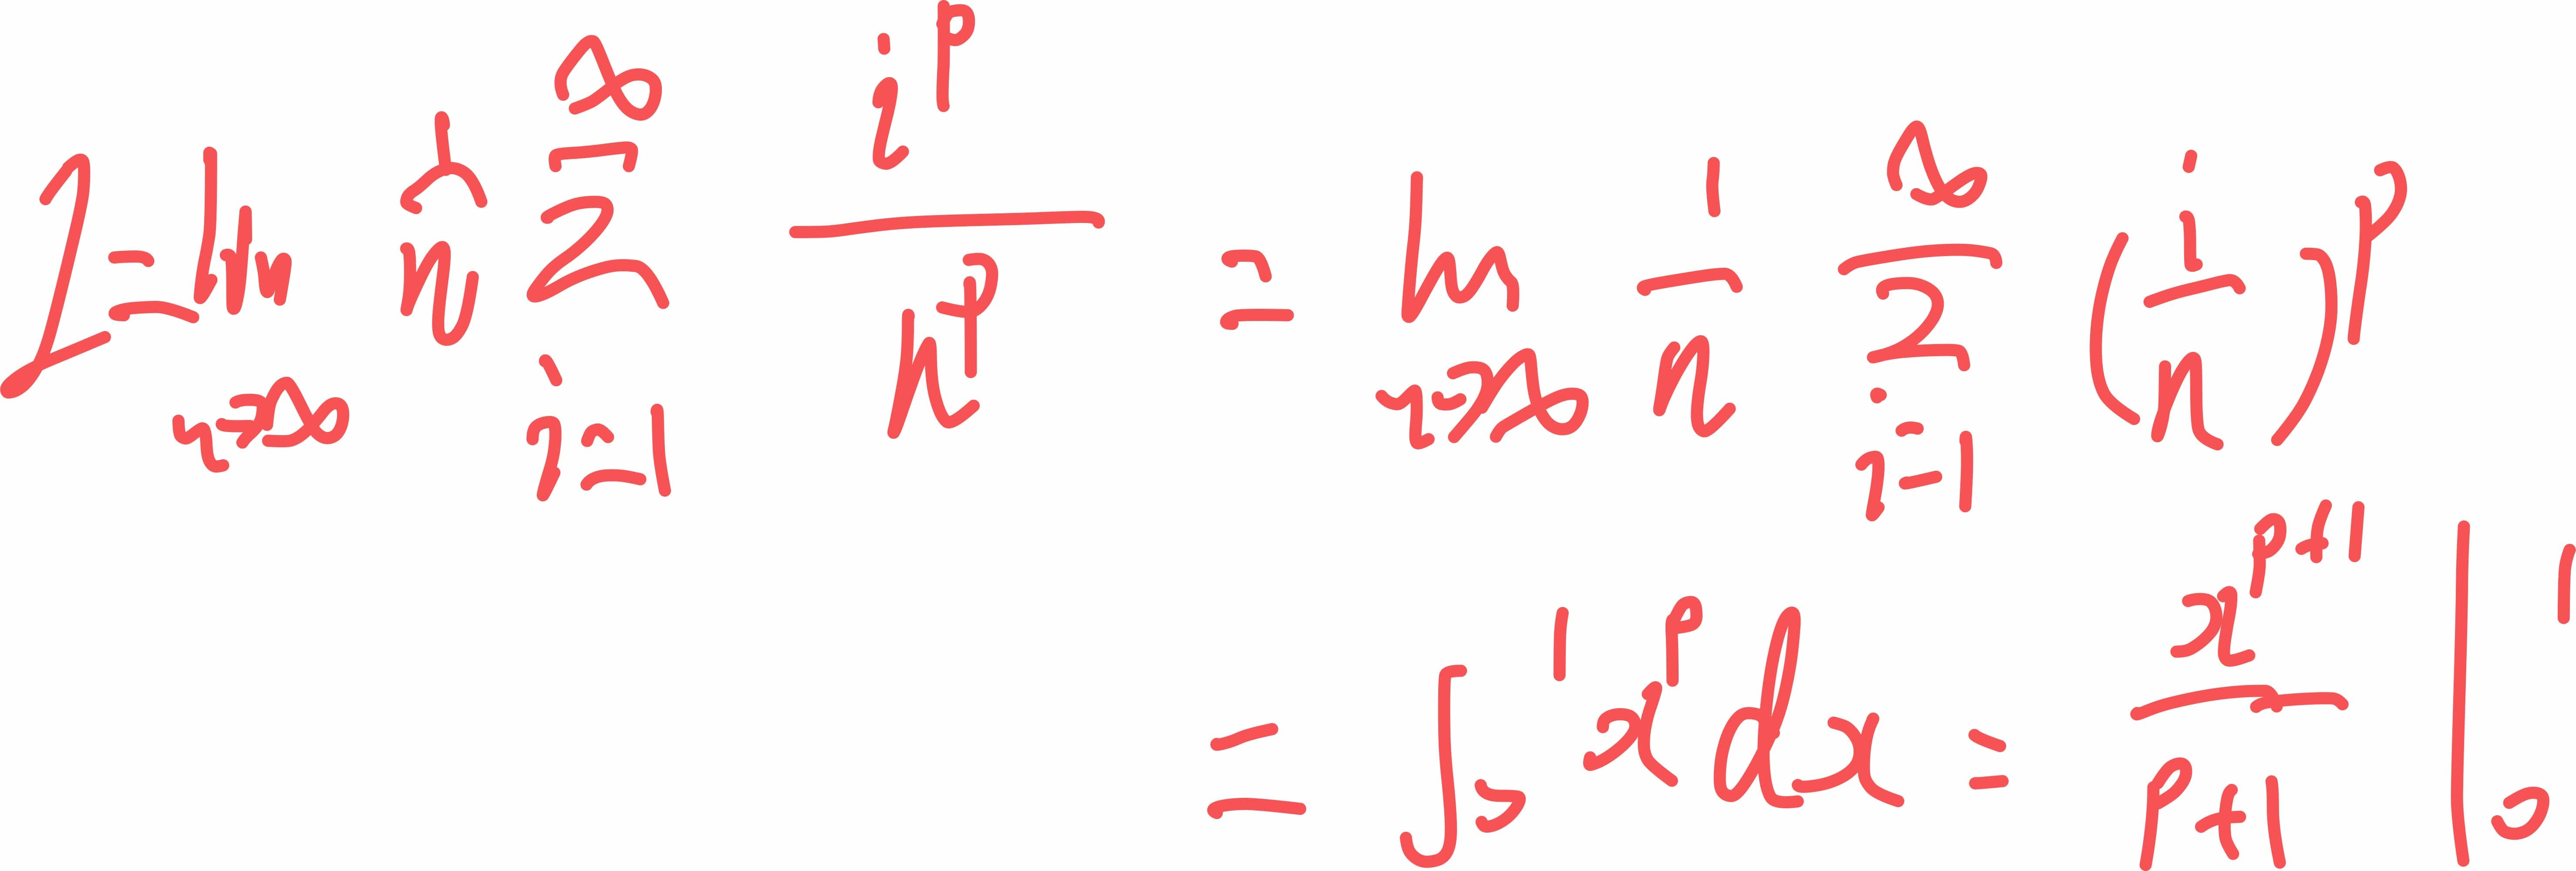 I = lim_{n→∞} 1/n ∑_{i=1}^{∞} i^p / n^p = lim_{n→∞} 1/n ∑_{i=1}^{∞} (i/n)^p
= ∫_0^1 x^p dx = x^{p+1} / p+1 |_0^1